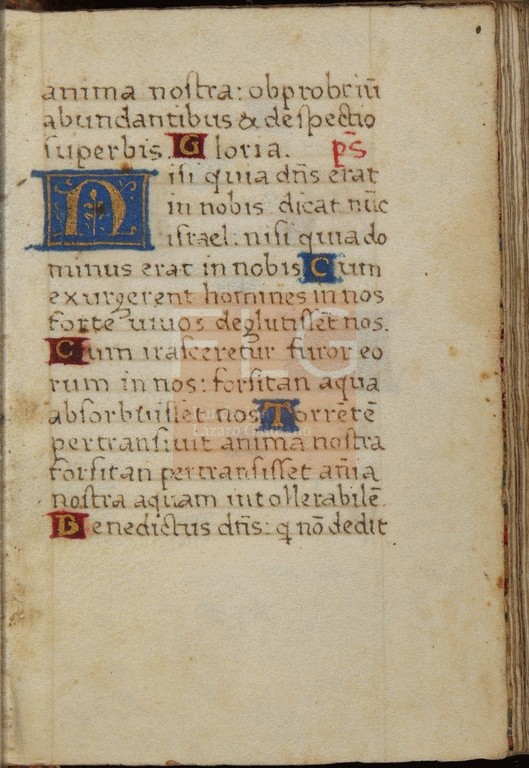 anima nostra: obprobriū
abundantibus & despectio
superbis. Gloria. ps̄
Nisi quia dn̄s erat
in nobis dicat nūc
israel: nisi quia do
minus erat in nobis Cum
exurgerent homines in nos
forte vivos deglutisset nos.
Cum irasceretur furor eo
rum in nos: forsitan aqua
absorbuisset nos Torrētē
pertransivit anima nostra
forsitan pertransisset aīa
nostra aquam intollerabilē
Benedictus dn̄s: q nō dedit
FLG
Lázaro Galdiano